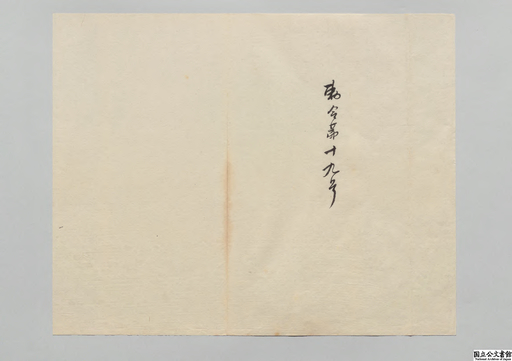 勅令第十九号
国立公文書館
National Archives of Japan